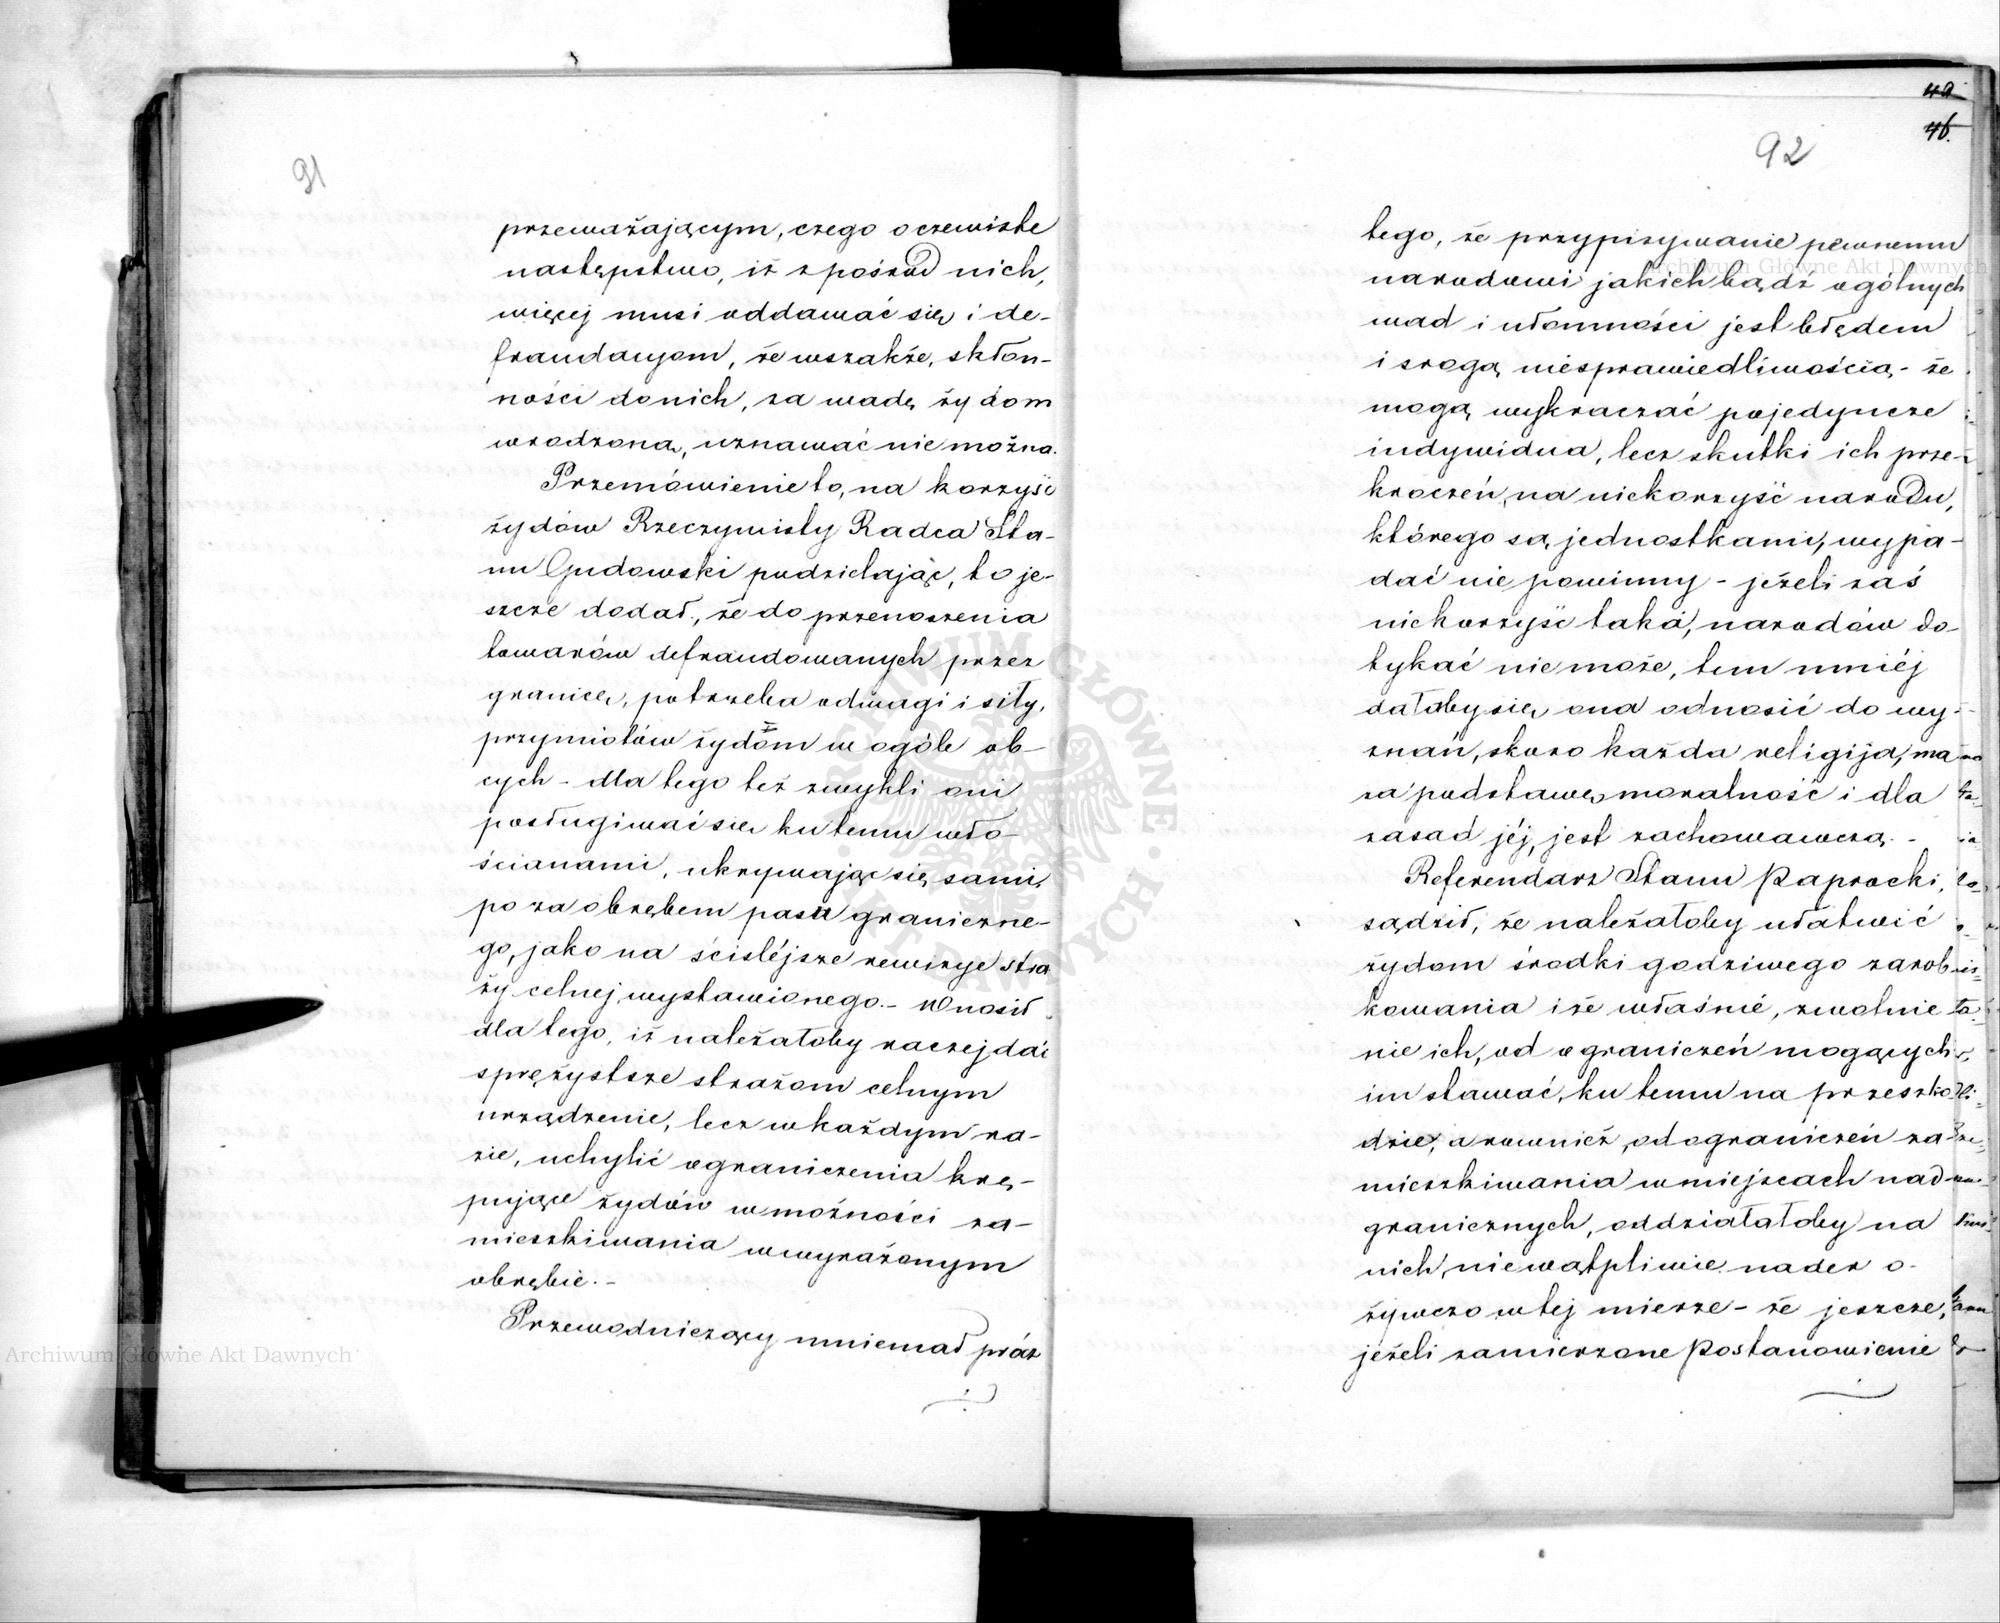 91
przeważającym, czego oczewiste
następstwo, iż z pośród nich,
więcej musi oddawać się i de-
fraudacyom, że wszakże, skłon-
ności do nich, za wadę żydóm
wrodzoną, uznawać nie można.
Przemówienie to, na korzyść
żydów Rzeczywisty Radca Sta-
nu Gudowski podzielając, to je-
szcze dodał, że do przenoszenia
towarów defraudowanych przez
granicę, potrzeba odwagi i siły,
przymiotów żydóm w ogóle ob-
cych - dla tego też zwykli oni
posługiwać się ku temu wło-
ścianami, ukrywając się sami,
po za obrębem pasu graniczne-
go, jako na ściślejsze rewizye stra
ży celnej, wystawionego. - Wnosił
dla tego, iż należałoby raczej dać
sprężystsze strażom celnym
urządzenie, lecz w każdym ra-
zie, uchylić ograniczenia krę-
pujące żydów w możności za-
mieszkiwania w wyrażonym
obrębie. -
Przewodniczący mniemał prócz
42
46.
92
tego, że przypisywanie pewnemu
narodowi jakich bądź ogólnych
wad i ułomności jest błędem
i srogą niesprawiedliwością - że
mogą wykraczać pojedyncze
indywidua, lecz skutki ich prze-
kroczeń, na niekorzyść narodu,
którego są jednostkami, wypa-
dać nie powinny - jeżeli zaś
niekorzyść taka, narodów do-
tykać nie może, tem mniéj
dałaby się ona odnosić do wy-
znań, skoro każda religija, ma
za podstawę moralność i dla
zasad jéj, jest zachowawczą. -
Referendarz Stanu Paprocki,
sądził, że należałoby ułatwić
żydom środki godziwego zarob
kowania i że właśnie, zwolnie
nie ich, od ograniczeń mogących
im stawać, ku temu na przeszko
dzie, a rownież, od ograniczeń za-
mieszkiwania w miejscach nad
granicznych, oddziałałoby na
nich, niewątpliwie nader o-
żywczo w tej mierze - że jeszcze,
jeżeli zamierzone Postanowienie
Archiwum Główne Akt Dawnych
Archiwum Główne Akt Dawnych
ARCHIWUM GŁÓWNE · AKT DAWNYCH ·